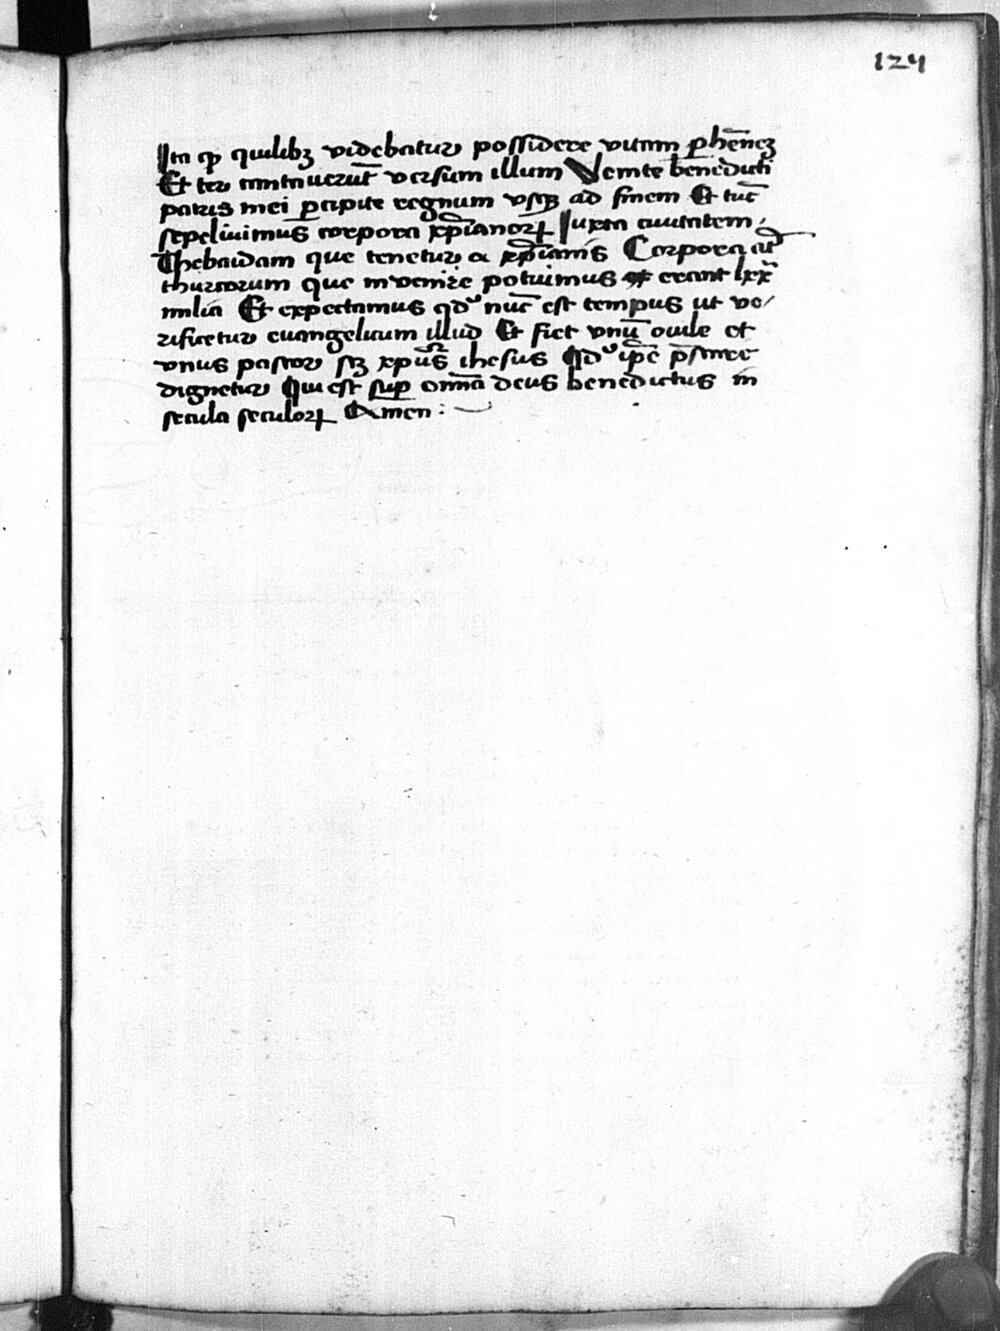 124
Ita qͥ quilibꝫ videbatur possidere vitam ꝑhēneꝫ
Et ter cantauerūt versum illum Venite benedicti
patris mei ꝑcipite regnum vsqꝫ ad finem Et tūc
sepeliuimus corpora xp̄ianoꝝ Iuxta ciuitatem
Thebaidam que tenetur a xp̄ianis Corpora aūt
thurcorum que inuenire potuimus erant lxx
milia Et expectamus qd nūc est tempus ut ve/
rificetur euangelium illud Et fiet vnū ouile et
vnus pastor sꝫ xp̄us ihesus Qd ip̄e p̄stare
dignetur Qui est suꝑ om̄ia deus benedictus in
secula seculoꝝ Amen :